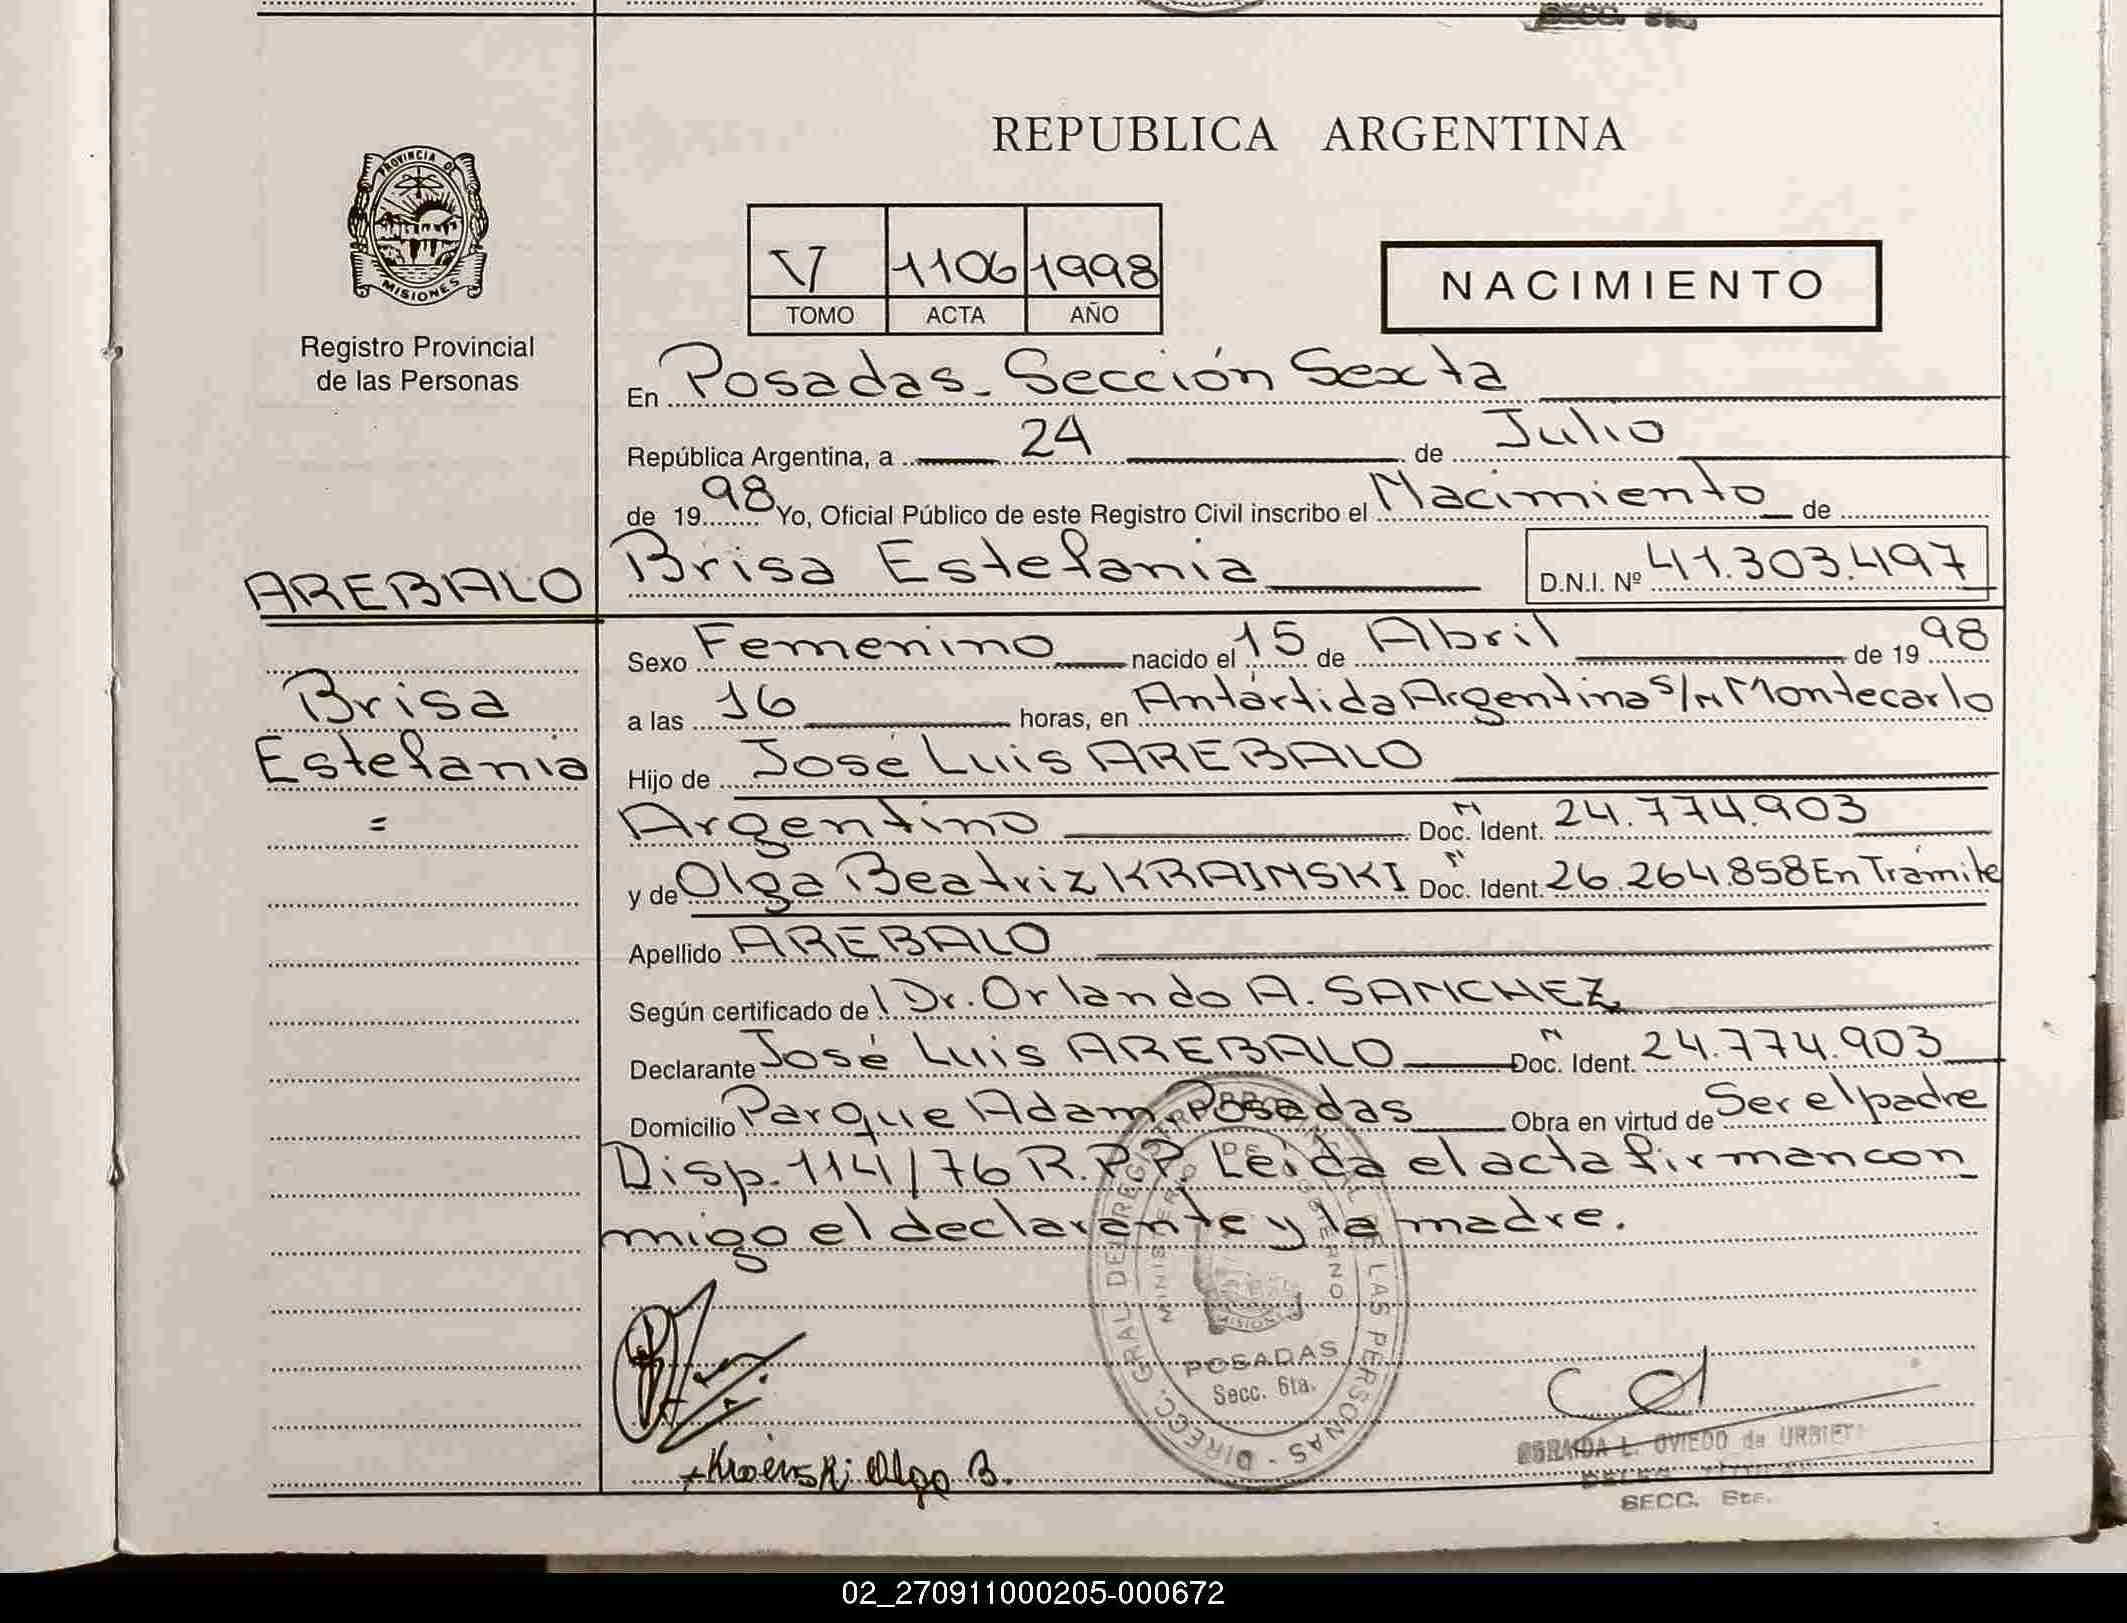 SECC. 6ta.
PROVINCIA DE
MISIONES
Registro Provincial
de las Personas
REPUBLICA ARGENTINA
V 1106 1998
TOMO ACTA AÑO
NACIMIENTO
En Posadas - Sección Sexta
República Argentina, a 24 de Julio
de 19 98 Yo, Oficial Público de este Registro Civil inscribo el Nacimiento de
AREBALO
Brisa
Estefania
=
Brisa Estefania D.N.I. Nº 41.303.497
Sexo Femenino nacido el 15 de Abril de 19 98
a las 16 horas, en Antártida Argentina s/n Montecarlo
Hijo de José Luis AREBALO
Argentino Doc. N Ident. 24.774.903
y de Olga Beatriz KRAINSKI Doc. N Ident. 26.264.858 En Trámite
Apellido AREBALO
Según certificado de l Dr. Orlando A. SANCHEZ
Declarante José Luis AREBALO Doc. N Ident. 24.774.903
Domicilio Parque Adam, Posadas Obra en virtud de Ser el padre
Disp. 114/76 R.P.P. Leida el acta firman con
migo el declarante y la madre.
DIRECC. GRAL DE REGISTRO PROVINCIAL DE LAS PERSONAS -
MINISTERIO DE GOBIERNO
MISIONES
POSADAS
Secc. 6ta.
Krainski Olga B.
L. OVIEDO de URBIETA
SECC. 6ta.
02_270911000205-000672